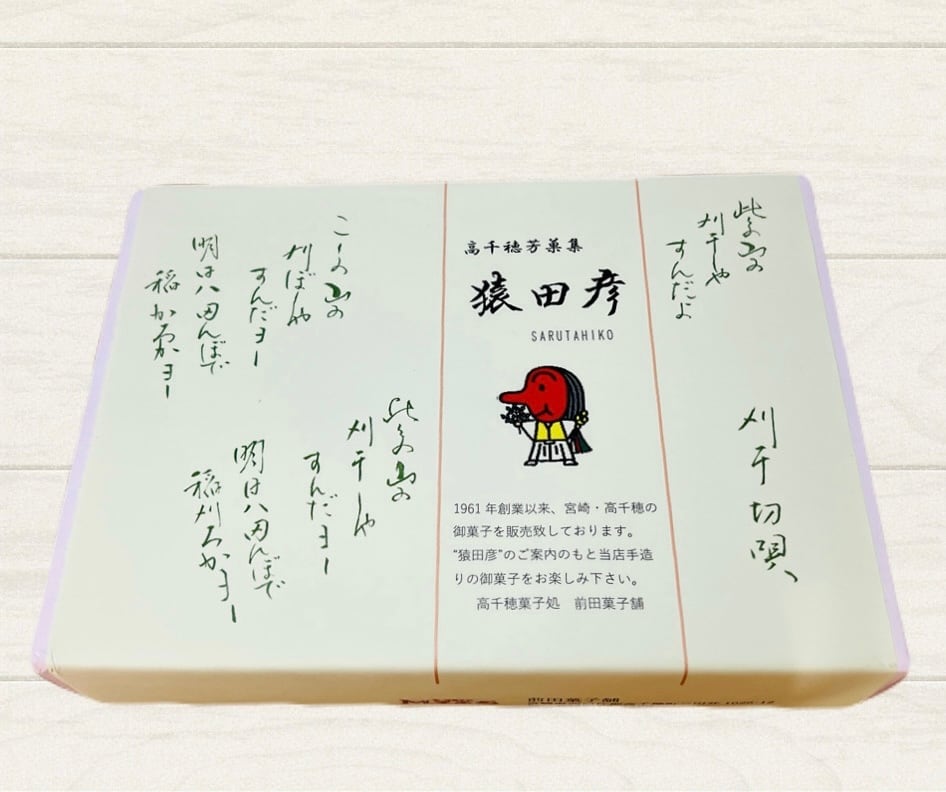 此の山の
刈干しや
すんだよ
刈干切唄
高千穂芳菓集
猿田彦
SARUTAHIKO
1961年創業以来、宮崎・高千穂の
御菓子を販売致しております。
“猿田彦”のご案内のもと当店手造
りの御菓子をお楽しみ下さい。
高千穂菓子処 前田菓子舗
こーの山の
刈ぼしや
すんだヨー
明は八田んぼで
稲かろかヨー
此の山の
刈干しや
すんだヨー
明は八田んぼで
稲刈ろかヨー
前田菓子舗